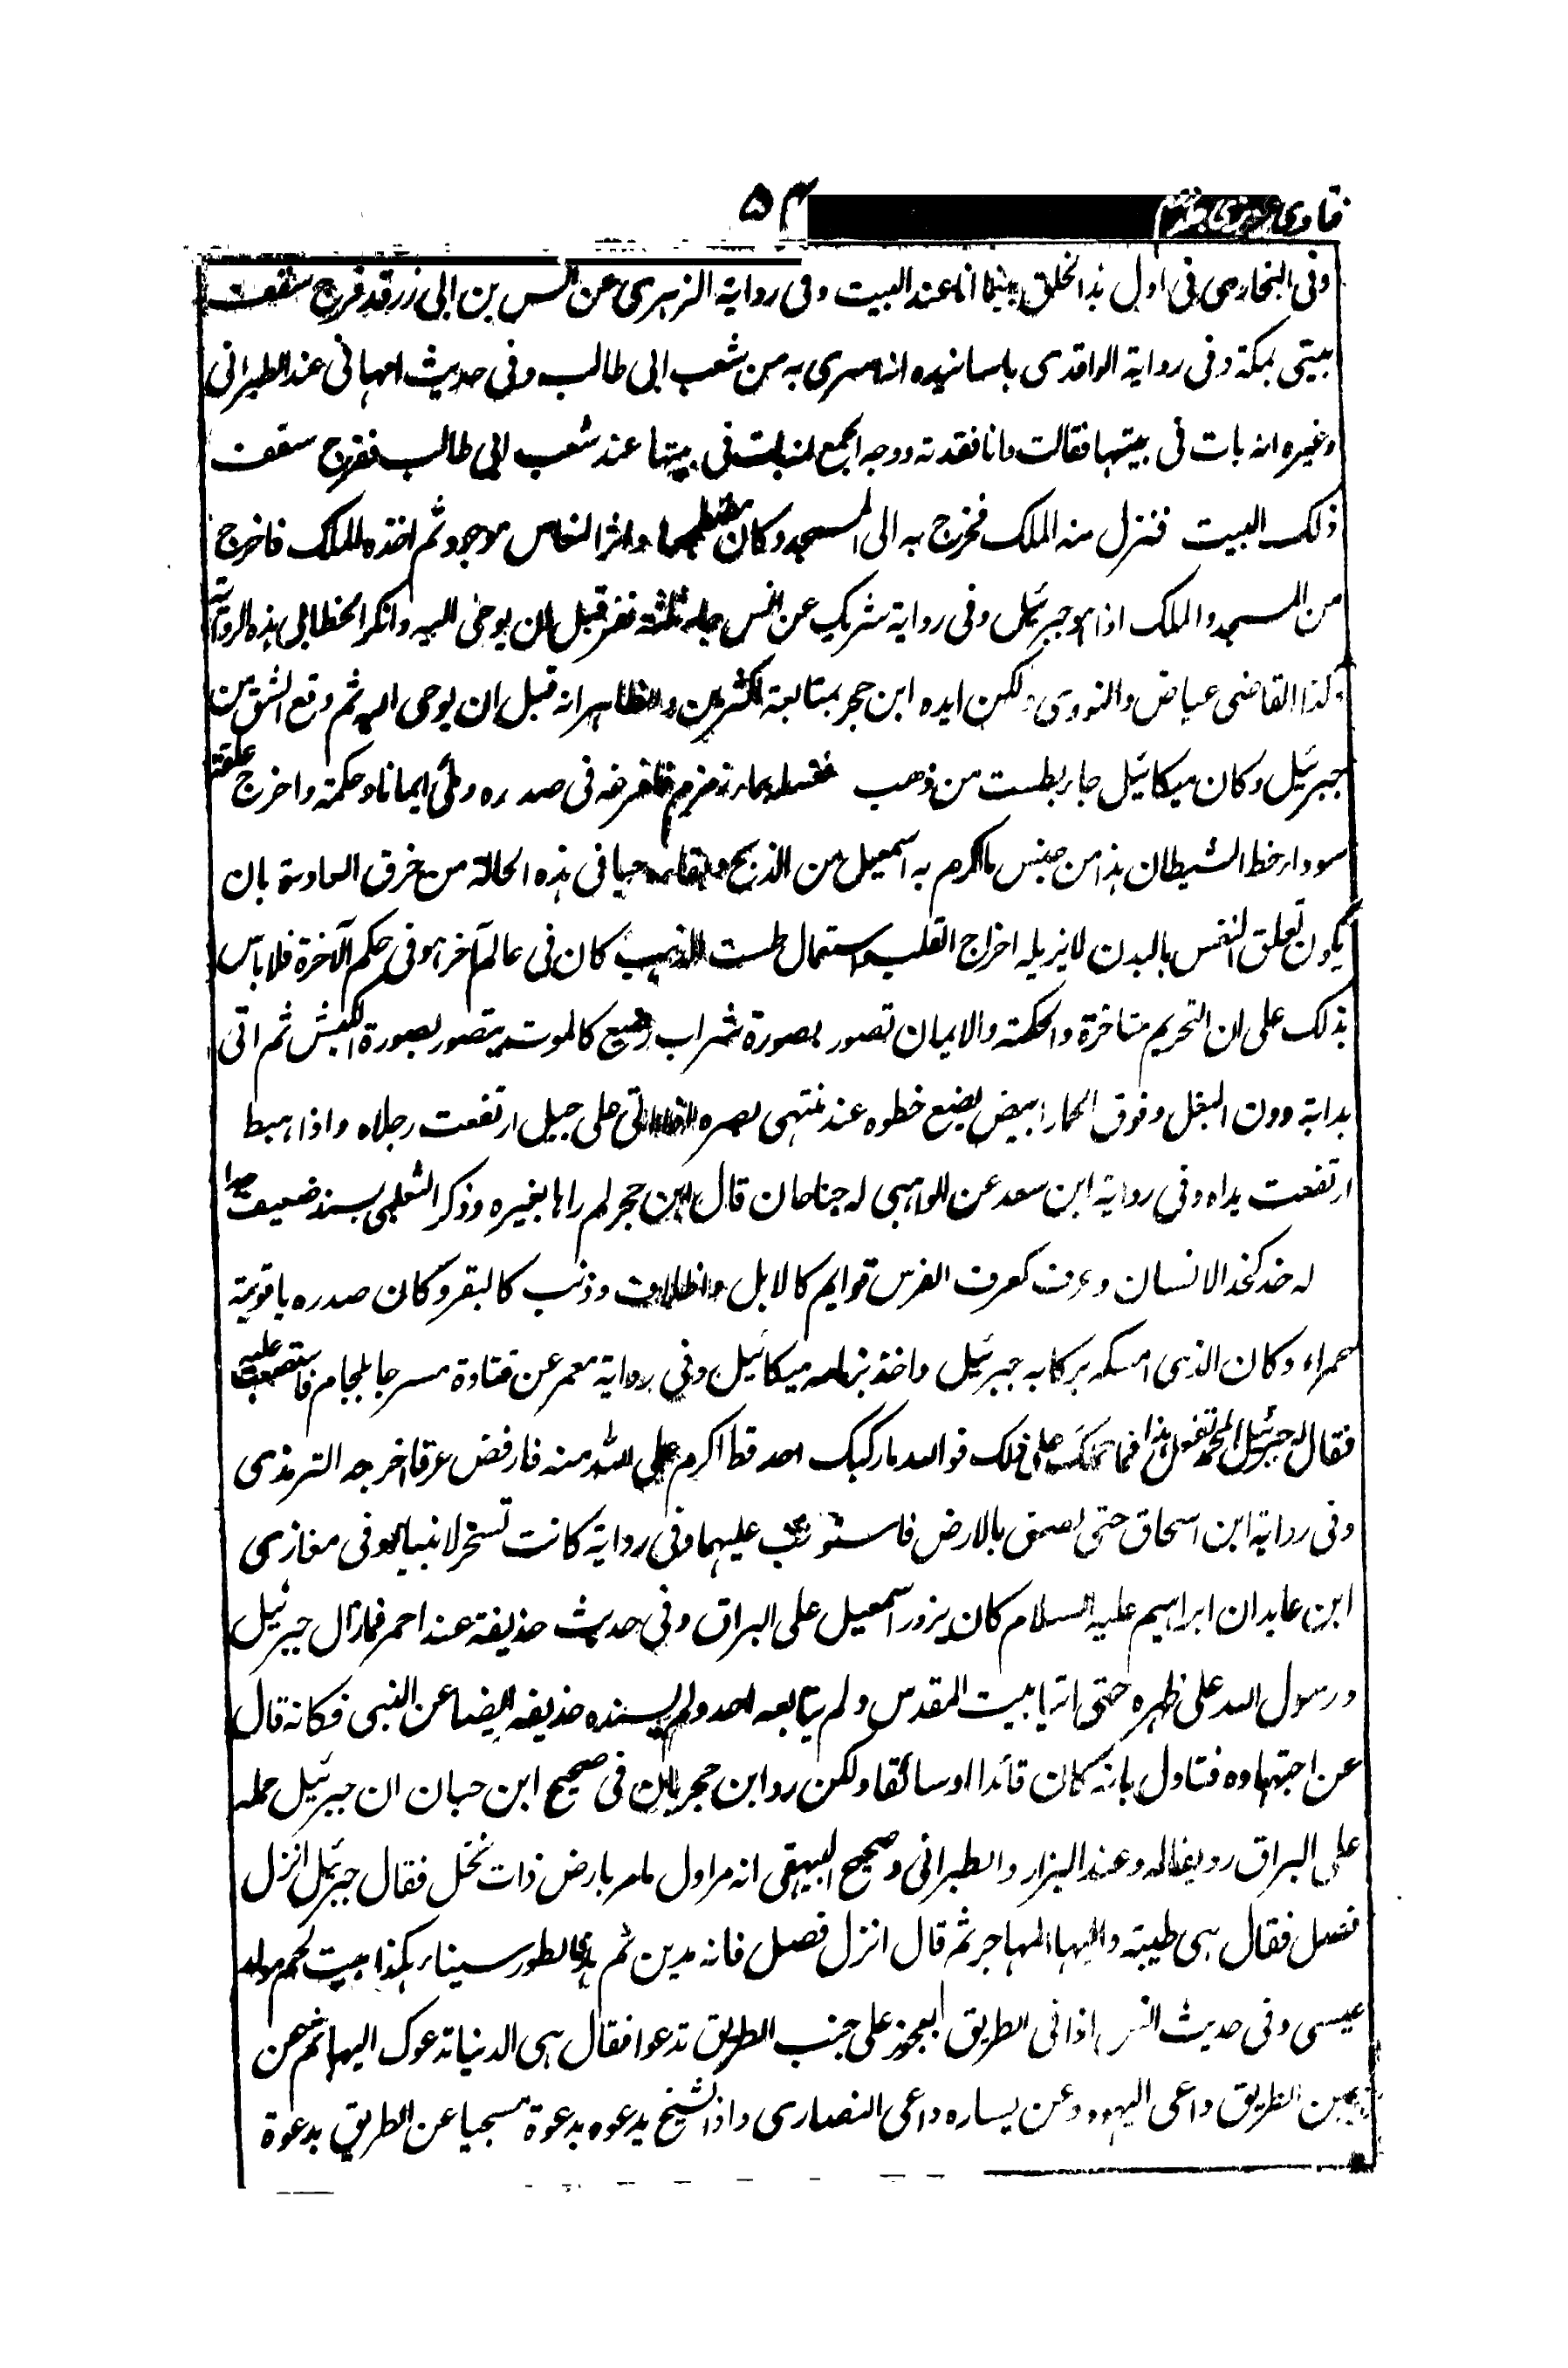 ۵۴
وفی البخاری فی اول بذا الخلق بینما انا عند البیت وفی روایة الزہری عن انس بن ابی زر قد فرج سقف
بیتی بمکة وفی روایة الواقدی باسانیدہ انہ اسری بہ من شعب ابی طالب وفی حدیث امہانی عند الطبرانی
وغیرہ انہ بات فی بیتہا فقالت وانا فقدتہ ووجہ الجمع انہ بات فی بیتہا عند شعب ابی طالب ففرج سقف
ذلک البیت فنزل منہ الملک فخرج بہ الی المسجد وکان مضطجعا واثر النعاس موجود ثم اخذہ الملک فاخرج
من المسجد والملک اذا ہو جبرئیل وفی روایة شریک عن انس جاء ثلثة نفر قبل ان یوحی الیہ وانکر الخطابی ہذہ الروایة
وکذا القاضی عیاض والنووی ولکن ایدہ ابن حجر بمتابعة کثیرین والظاہر انہ قبل ان یوحی الیہ ثم وقع الشق من
جبرئیل وکان میکائیل جاء بطست من ذهب فغسلہ بماء زمزم فافرغہ فی صدرہ وملئ ایمانا وحکمة واخرج علقة
سوداء خط الشیطان ہذا من جنس ما اکرم بہ اسمعیل من الذبح وبقاءہ حیا فی ہذہ الحالة من خرق العادة بان
یکون تعلق النفس بالبدن لا یزیلہ اخراج القلب واستعمال طست الذہب کان فی عالم آخر ہو فی حکم الآخرة فلا باس
بذلک علی ان التحریم متاخرة والحکمة والایمان تصور بصورة شراب وضیع کالموت یتصور بصورة الکبش ثم اتی
بدابة دون البغل وفوق الحمار ابیض یضع خطوہ عند منتہی بصرہ اذا اتی علی جبل ارتفعت رجلاہ واذا ہبط
ارتفعت یداہ وفی روایة ابن سعد عن الواہبی لہ جناحان قال ابن حجر لم راہا بغیرہ وذکر الثعلبی بسند ضعیف جدا
لہ خد کخد الانسان وعرف کعرف الفرس قوایم کالابل واظلاف وذنب کالبقر وکان صدرہ یاقوتة
حمراء وکان الذی امسکہ برکابہ جبرئیل واخذ بزمامہ میکائیل وفی روایة معمر عن قتادة مسرجا بلجام فاستصعب علیہ
فقال لہ جبرئیل المحمد تفعل ہذا فما حملک علی ذلک فواللہ مارکبک احد قط اکرم علی اللہ منہ فارفض عرقا اخرجہ الترمذی
وفی روایة ابن اسحاق حتی لصق بالارض فاستوت علیہما وفی روایة کانت تسخر لانبیاء وفی مغازی
ابن عابد ان ابراہیم علیہ السلام کان یزور اسمعیل علی البراق وفی حدیث حذیفة عند احمر فما زال جبرئیل
ورسول اللہ علی ظہرہ حتی اتیا بیت المقدس ولم یتابعہ احد ولم یسندہ حذیفہ ایضا عن النبی فکانہ قال
عن اجتہادہ فتاول بانہ کان قائدا او سائقا ولکن رد ابن حجر بان فی صحیح ابن حبان ان جبرئیل حملہ
علی البراق ردیفا لہ وعند البزار والطبرانی وصحیح البیہقی انہ مر اول مامر بارض ذات نخل فقال جبرئیل انزل
فصل فقال ہی طیبة والیہا المہاجر ثم قال انزل فصل فانہ مدین ثم بالطور سیناء ہکذا بیت لحم مولد
عیسی وفی حدیث انس اذا فی الطریق العجوز علی جنب الطریق تدعوا فقال ہی الدنیا تدعوک الیہا ثم عن
یمین الطریق داعی الیہود وعن یسارہ داعی النصاری واذا شیخ یدعوہ بدعوة مسجیا عن الطریق بدعوة